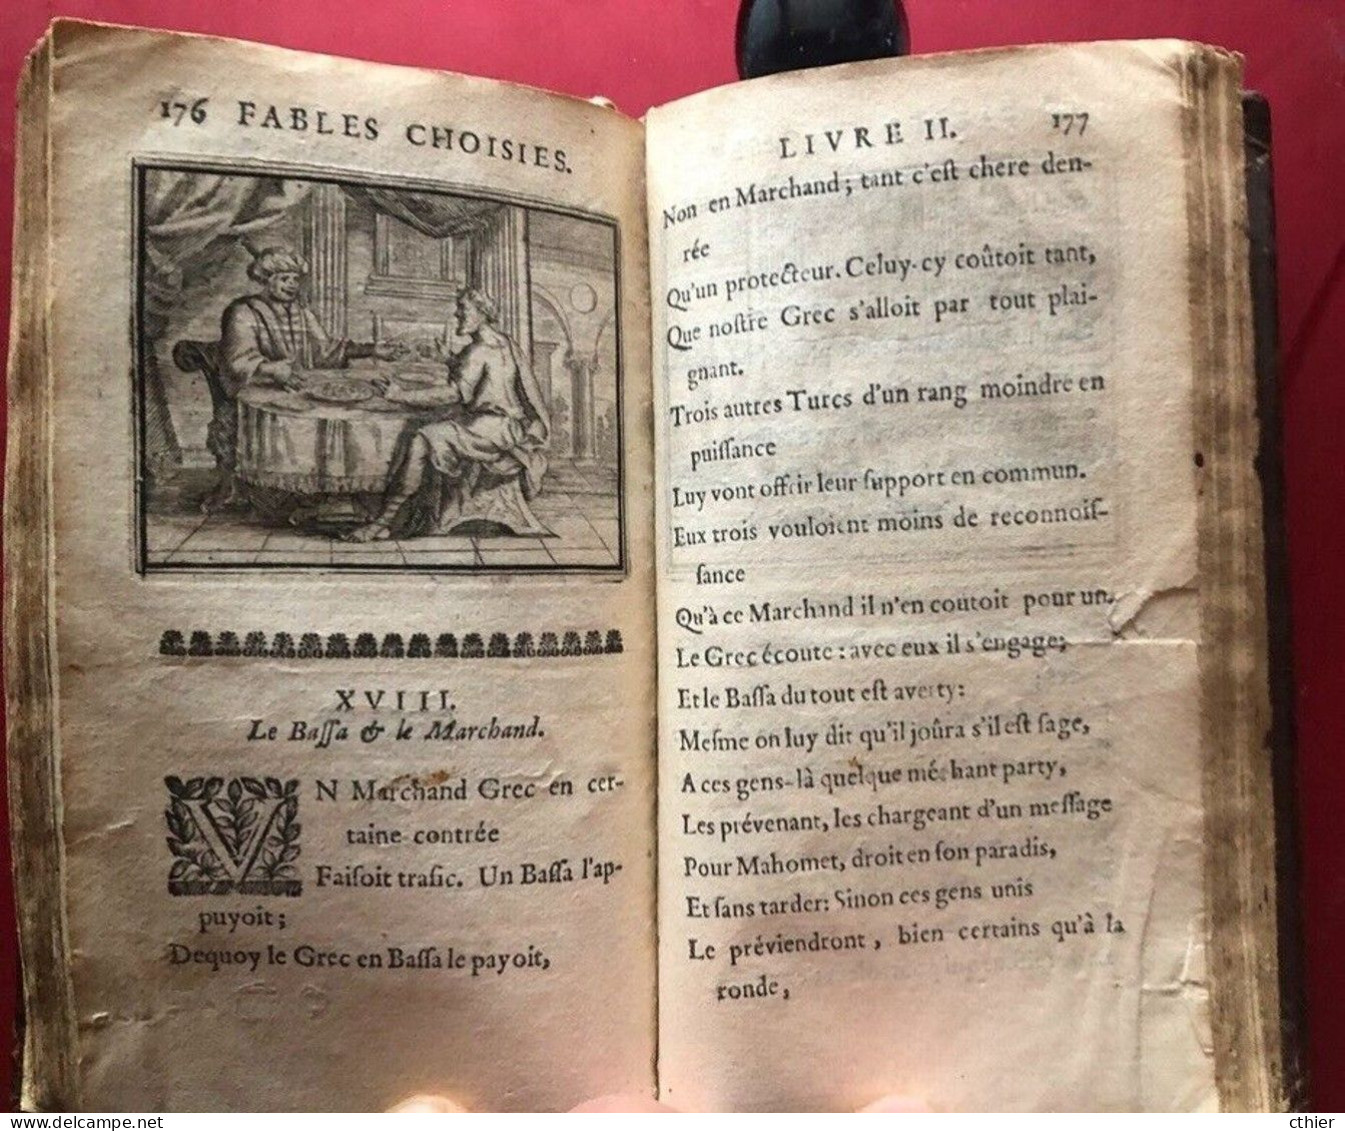 176 FABLES CHOISIES.
XVIII.
Le Baſſa & le Marchand.
VN Marchand Grec en cer-
taine contrée
Faiſoit trafic. Un Baſſa l'ap-
puyoit;
Dequoy le Grec en Baſſa le payoit,
LIVRE II. 177
Non en Marchand; tant c'eſt chere den-
rée
Qu'un protecteur. Celuy-cy coûtoit tant,
Que noſtre Grec s'alloit par tout plai-
gnant.
Trois autres Turcs d'un rang moindre en
puiſſance
Luy vont offrir leur ſupport en commun.
Eux trois vouloient moins de reconnoiſ-
ſance
Qu'à ce Marchand il n'en coutoit pour un.
Le Grec écoute: avec eux il s'engage;
Et le Baſſa du tout eſt averty:
Meſme on luy dit qu'il joûra s'il eſt ſage,
A ces gens-là quelque méchant party,
Les prévenant, les chargeant d'un meſſage
Pour Mahomet, droit en ſon paradis,
Et ſans tarder: Sinon ces gens unis
Le préviendront, bien certains qu'à la
ronde,
cthier